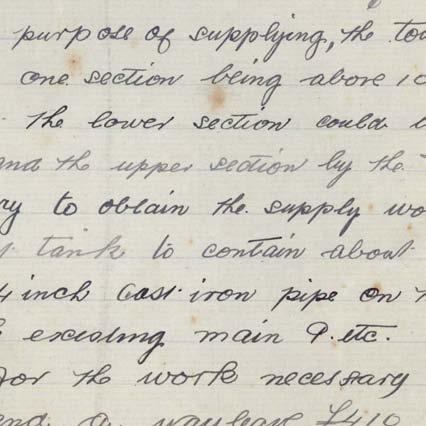 purpose of supplying, the
one section being above 10
the lower section could
and the upper section by the
to obtain the supply
tank to contain about
4 inch Cast iron pipe on
existing main P. etc.
for the work necessary
and a wayleave £410